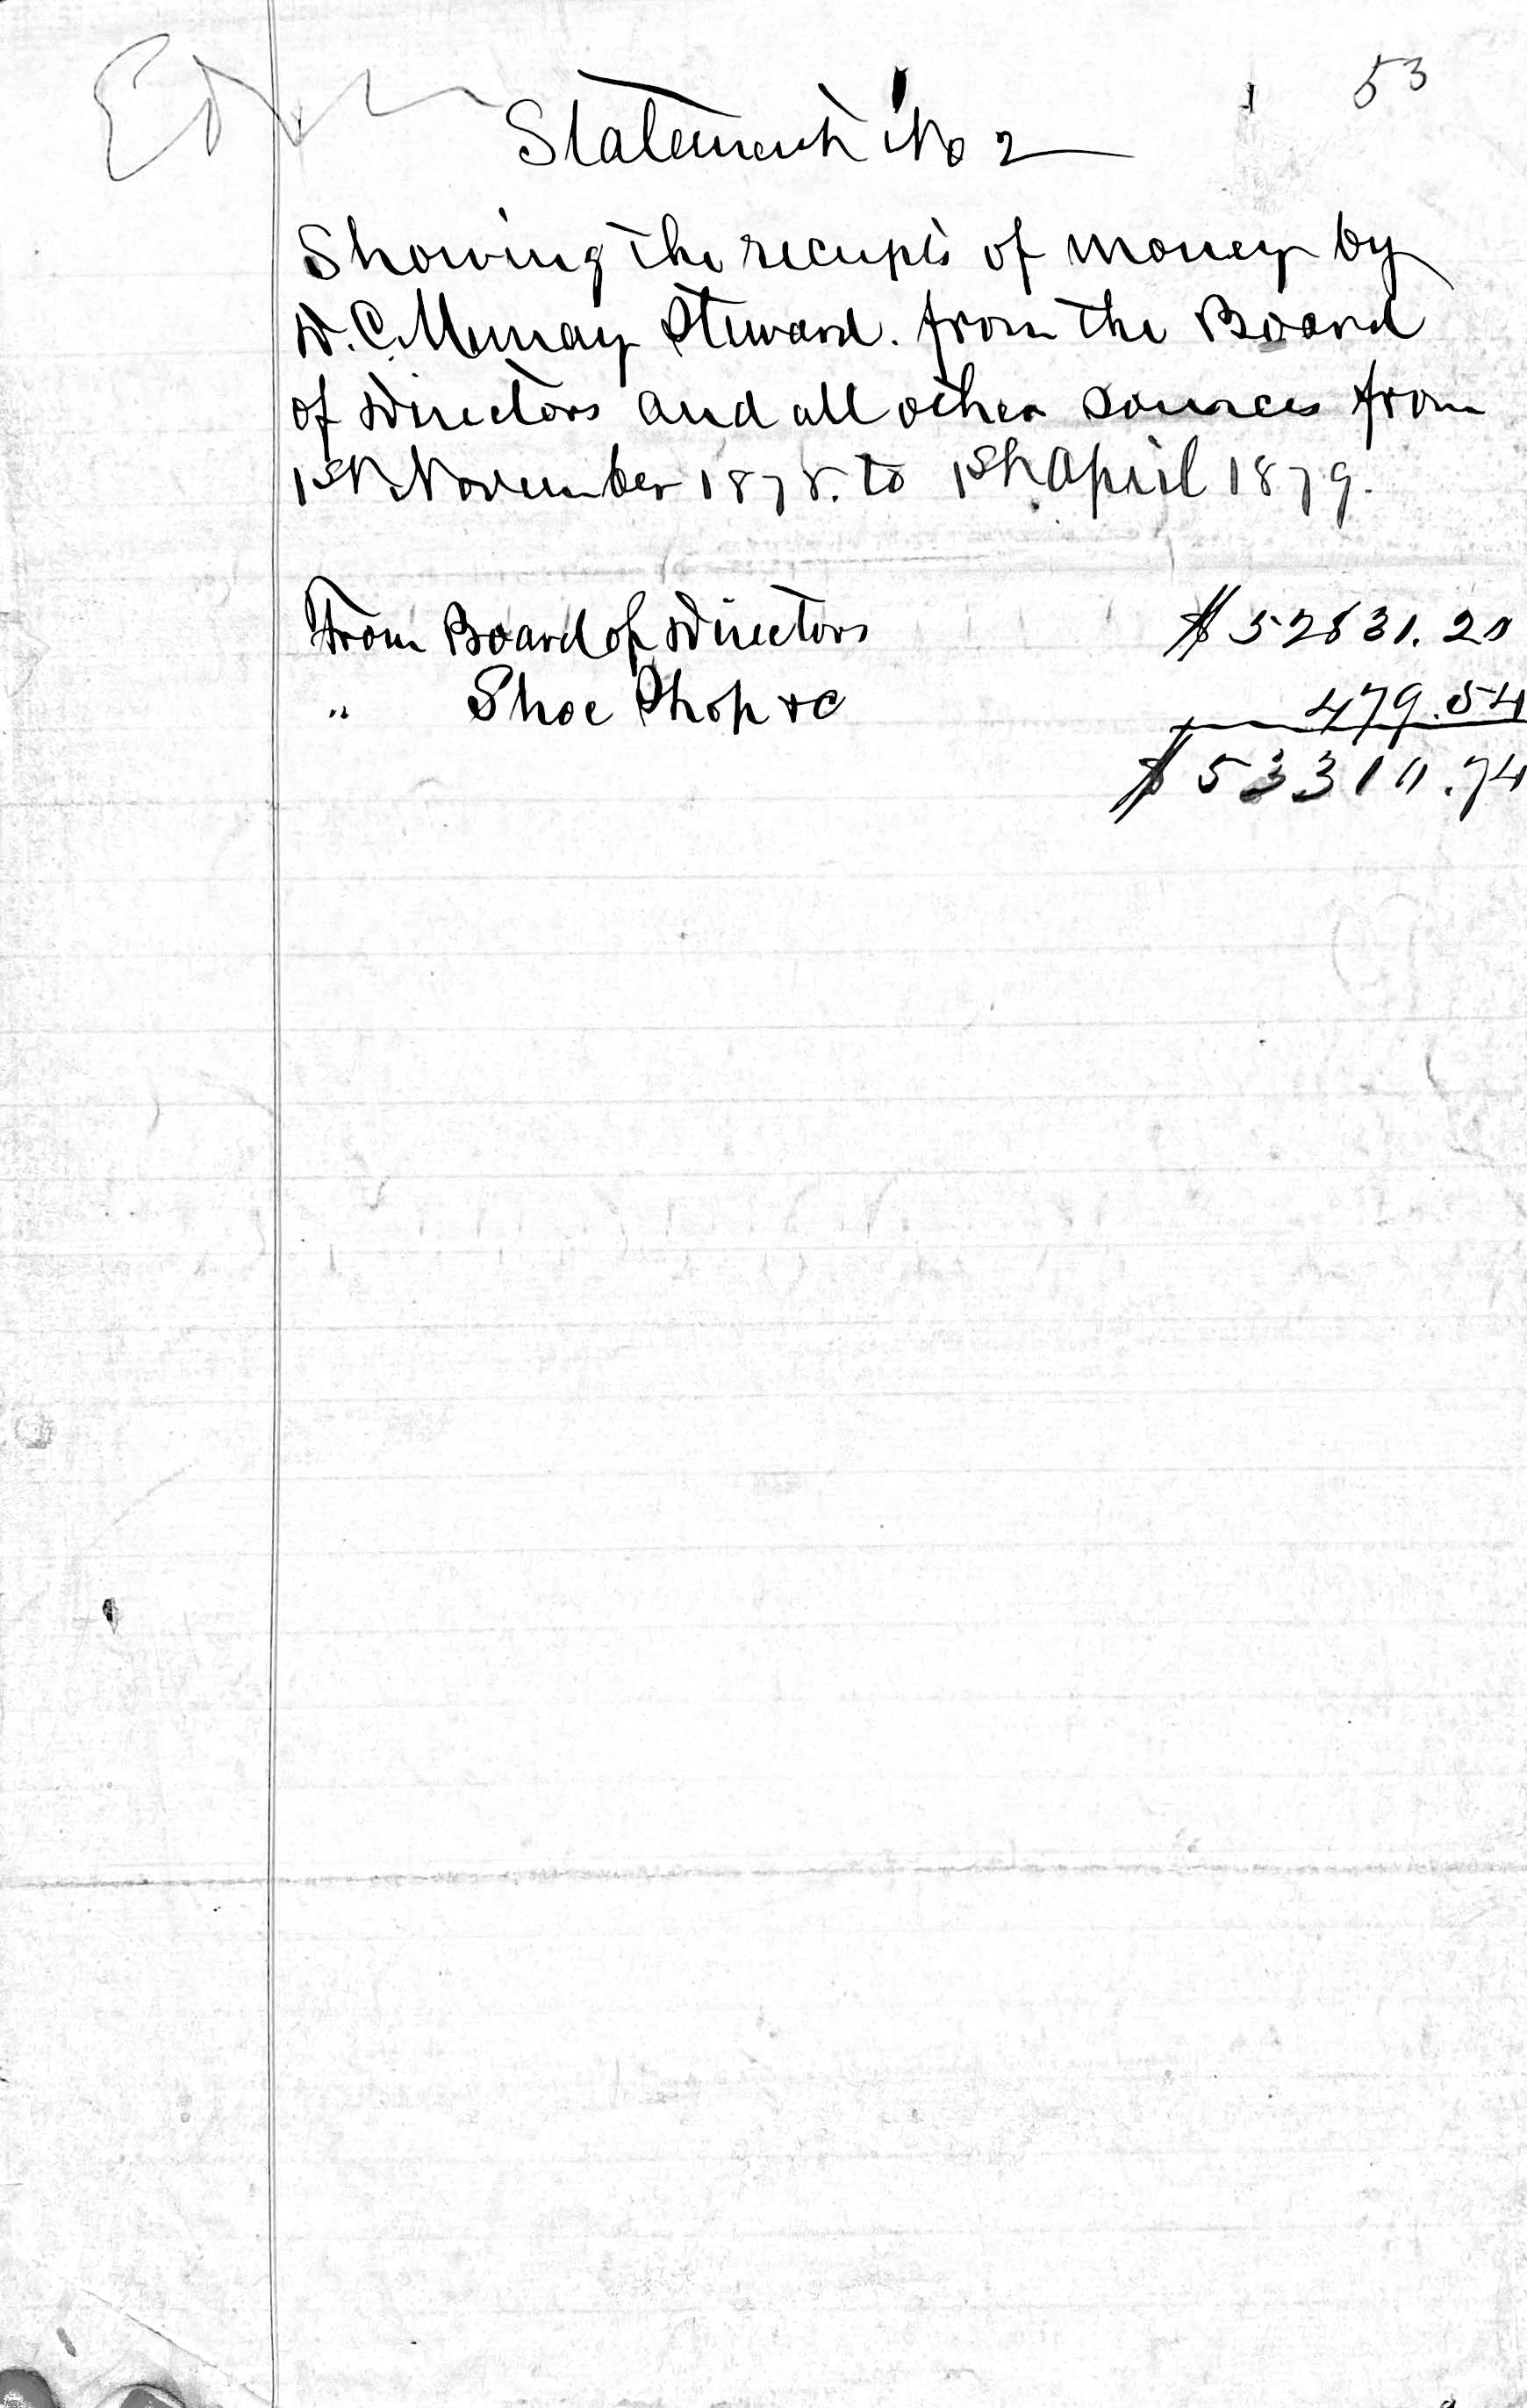 53
Statement No 2
Showing the receipts of money by
D. C. Murray Steward. from the Board
of Directors and all other sources from
1st November 1878. to 1st April 1879.
From Board of Directors $52831.20
" Shoe Shop &c 479.54
$53310.74